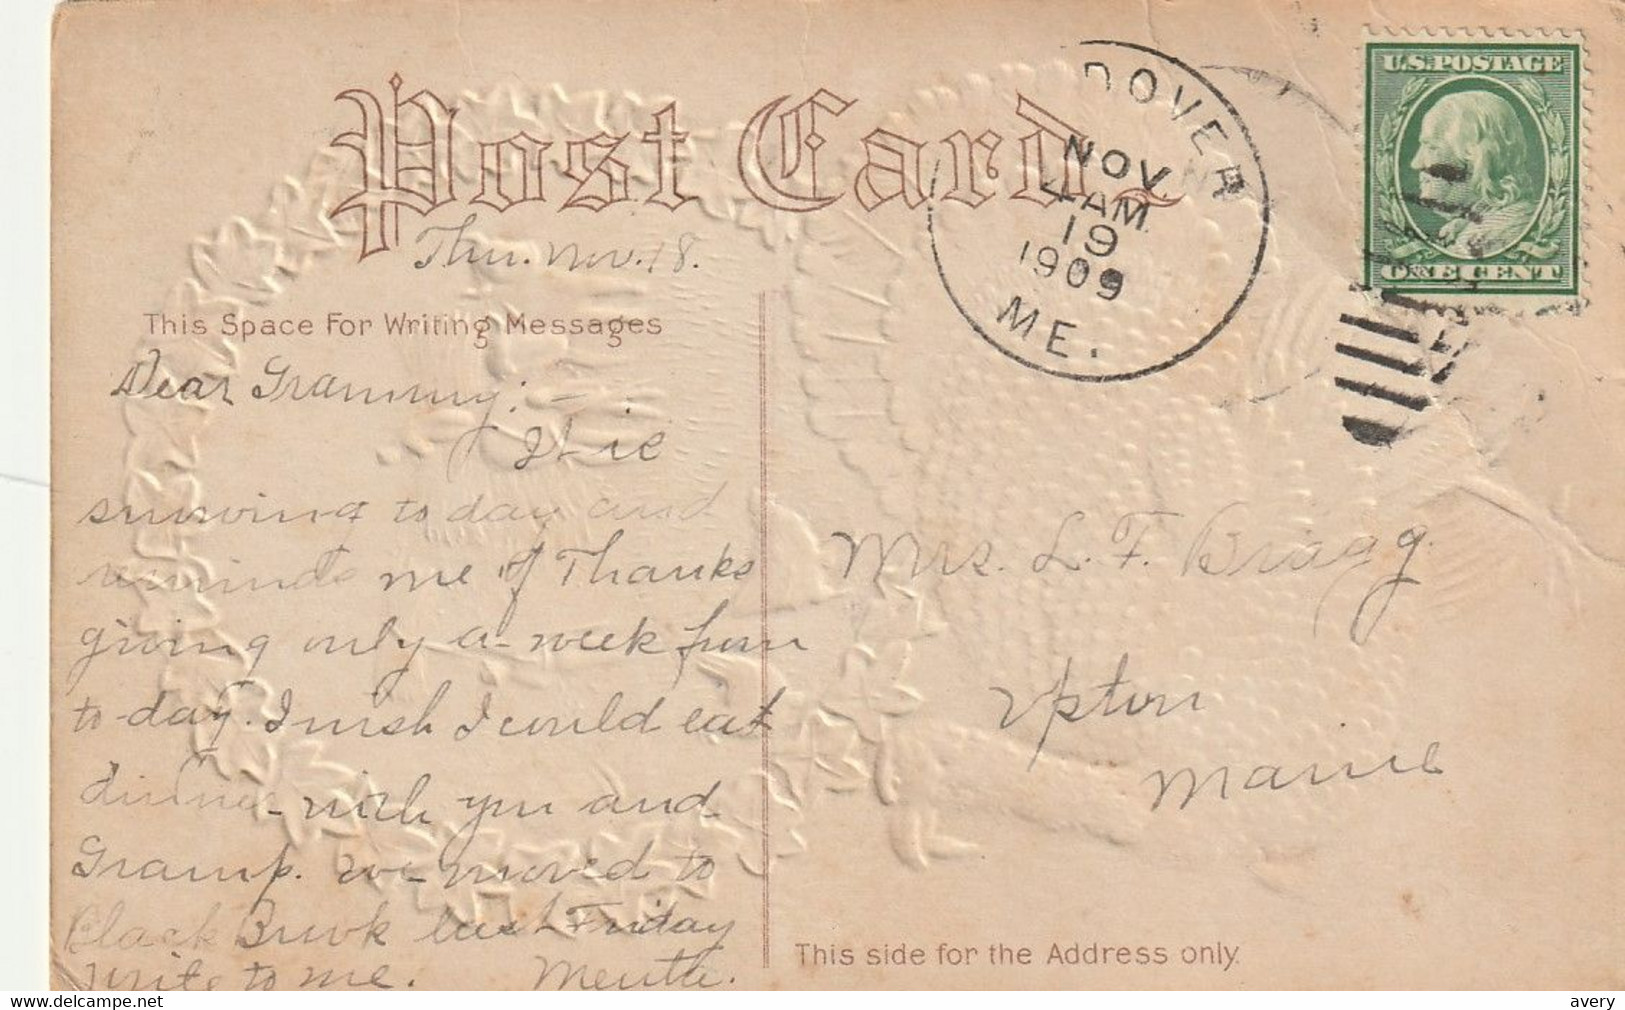 Post Card
DOVER
NOV
4 AM
19
1909
ME.
U.S. POSTAGE
ONE CENT
Thu. Nov. 18.
This Space For Writing Messages
Dear Grammy: –
It is
snowing to day and
reminds me of Thanks
giving only a week from
to-day. I wish I could eat
dinner with you and
Gramp. We moved to
Black Brook last Friday
write to me.
Mrs. L. F. Bragg.
Upton
Maine
This side for the Address only.
www.delcampe.net
avery